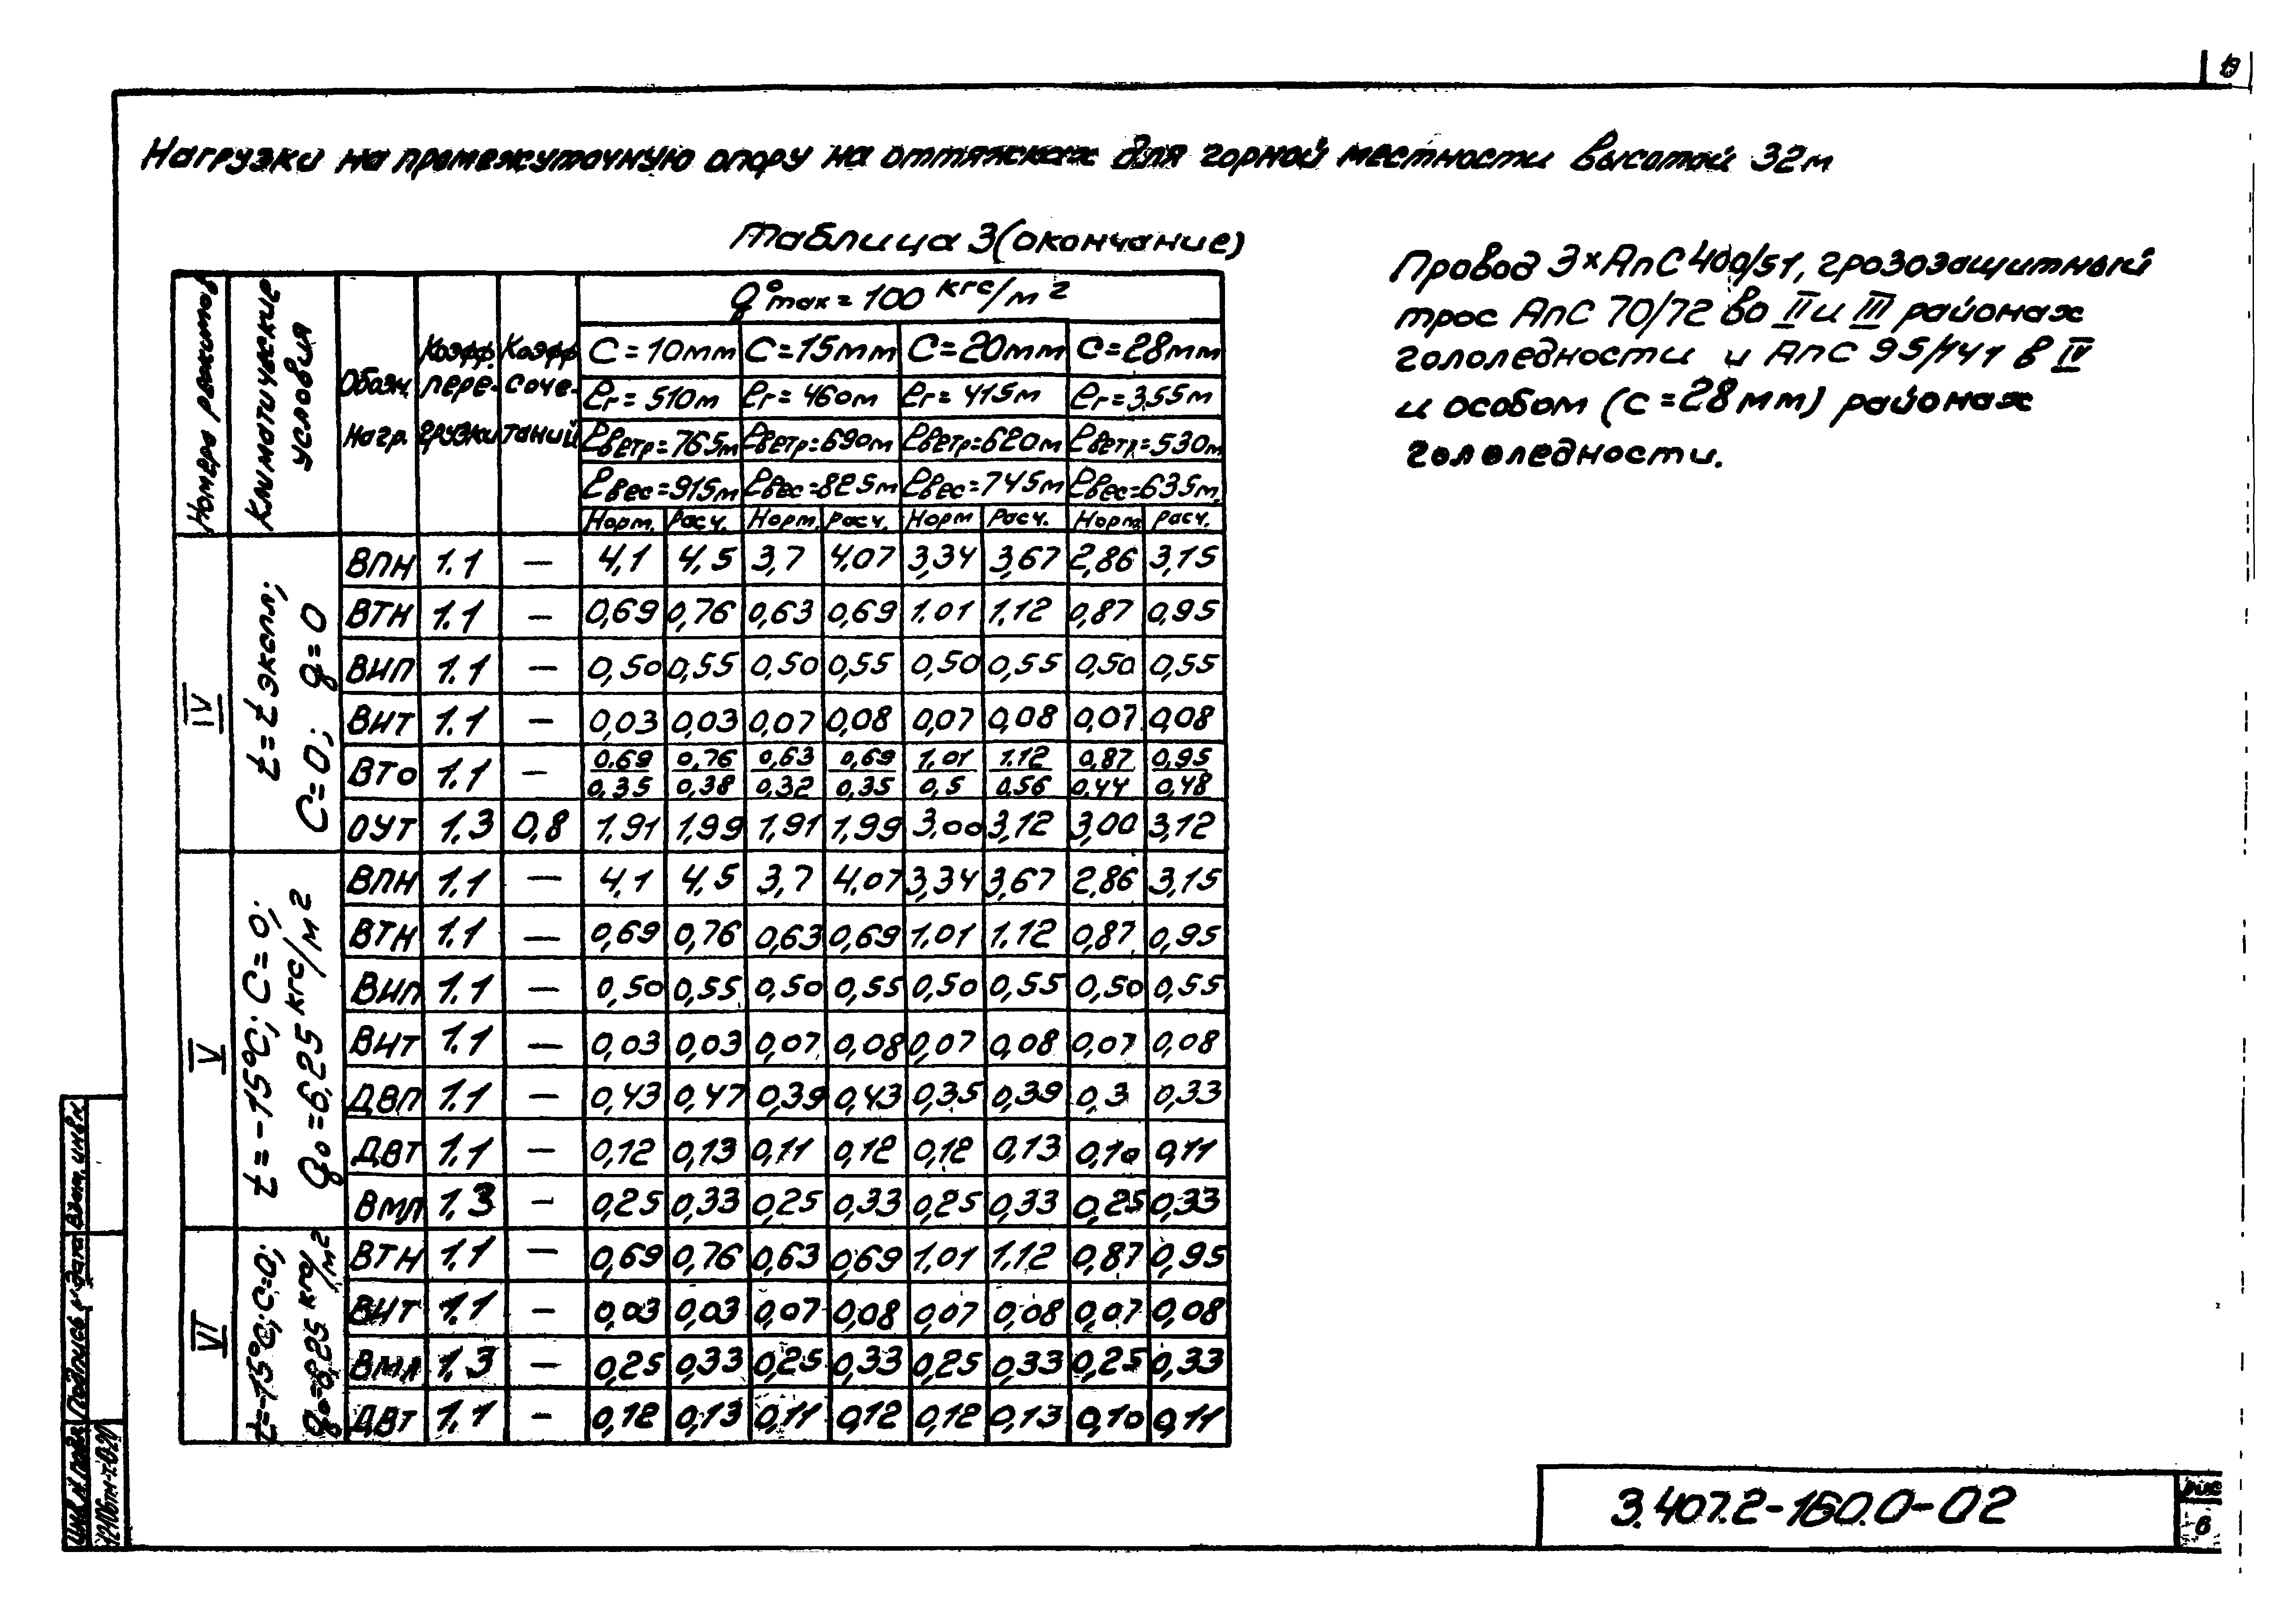 Нагрузки на промежуточную опору на оттяжках для горной местности высотой 32м
Таблица 3(окончание)
Провод 3×АпС 400/51, грозозащитный
трос АпС 70/72 во II и III районах
гололедности и АпС 95/141 в IV
и особом (с=28мм) районах
гололедности.
Номера режимов | Климатические условия | Обозн. нагр. | Коэфф. перегрузки | Коэфф. сочетаний | qᵒmax = 100 кгс/м²
C=10мм | C=15мм | C=20мм | C=28мм
ℓг=510м | ℓг=460м | ℓг=415м | ℓг=355м
ℓветр=765м | ℓветр=690м | ℓветр=620м | ℓветр.=530м
ℓвес=915м | ℓвес=825м | ℓвес=745м | ℓвес=635м
Норм. | Расч. | Норм. | Расч. | Норм | Расч. | Норм. | Расч.
IV
t=t экспл;
C=0; q=0
ВПН 1.1 — 4,1 4,5 3,7 4,07 3,34 3,67 2,86 3,15
ВТН 1.1 — 0,69 0,76 0,63 0,69 1.01 1.12 0,87 0,95
ВИП 1.1 — 0,50 0,55 0,50 0,55 0,50 0,55 0,50 0,55
ВИТ 1.1 — 0,03 0,03 0,07 0,08 0,07 0,08 0,07 0,08
ВТО 1.1 — 0.69/0,35 0,76/0,38 0,63/0,32 0,69/0,35 1,01/0,5 1.12/0,56 0,87/0.44 0,95/0,48
ОУТ 1.3 0,8 1,91 1,99 1,91 1,99 3,00 3,12 3,00 3,12
V
t=-15°C; C=0;
q₀=6,25 кгс/м²
ВПН 1.1 — 4,1 4,5 3,7 4,07 3,34 3,67 2,86 3,15
ВТН 1.1 — 0,69 0,76 0,63 0,69 1,01 1.12 0,87 0,95
ВИП 1.1 — 0,50 0,55 0,50 0,55 0,50 0,55 0,50 0,55
ВИТ 1.1 — 0,03 0,03 0,07 0,08 0,07 0,08 0,07 0,08
ДВП 1.1 — 0,43 0,47 0,39 0,43 0,35 0,39 0,3 0,33
ДВТ 1.1 — 0,12 0,13 0,11 0,12 0,12 0,13 0,10 0,11
ВМЛ 1.3 — 0,25 0,33 0,25 0,33 0,25 0,33 0,25 0,33
VI
t=-15°C; C=0;
q₀=6,25 кгс/м²
ВТН 1.1 — 0,69 0,76 0,63 0,69 1,01 1.12 0,87 0,95
ВИТ 1.1 — 0,03 0,03 0,07 0,08 0,07 0,08 0,07 0,08
ВМЛ 1.3 — 0,25 0,33 0,25 0,33 0,25 0,33 0,25 0,33
ДВТ 1.1 — 0,12 0,13 0,11 0,12 0,12 0,13 0,10 0,11
Взам. инв.н.
Подпись и дата
Инв. N подл.
3.407.2-160.0-02
6